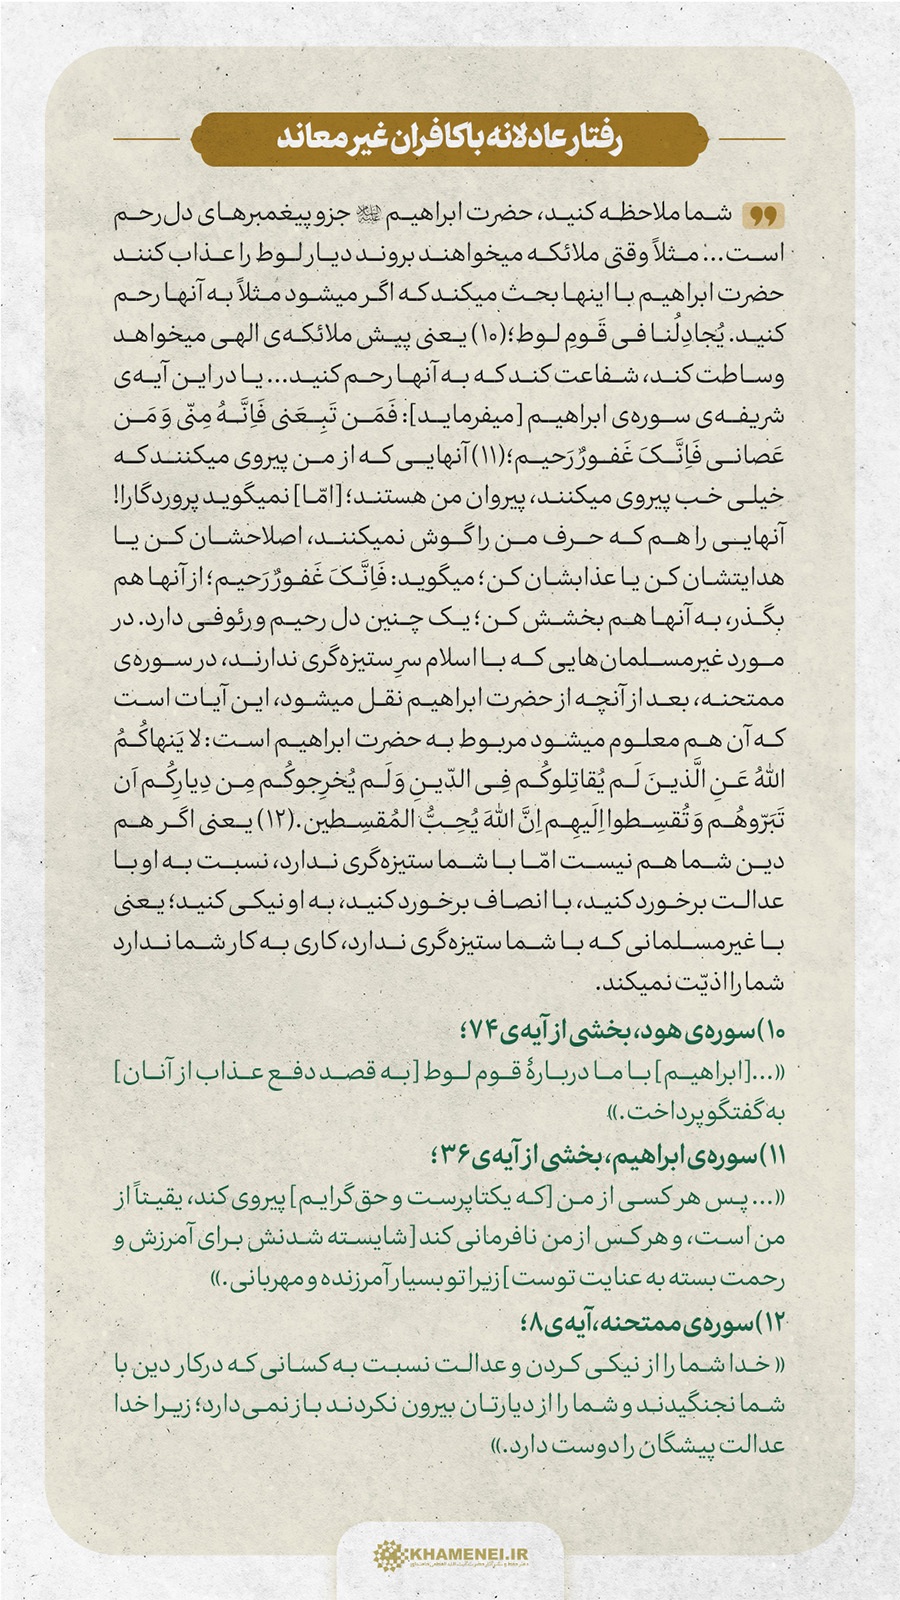 رفتار عادلانه با کافران غیر معاند
شما ملاحظه کنید، حضرت ابراهیم علیه‌السلام جزو پیغمبرهای دل‌رحم
است...: مثلاً وقتی ملائکه میخواهند بروند دیار لوط را عذاب کنند
حضرت ابراهیم با اینها بحث میکند که اگر میشود مثلاً به آنها رحم
کنید. یُجادِلُنا فی قَومِ لوط؛(۱۰) یعنی پیش ملائکه‌ی الهی میخواهد
وساطت کند، شفاعت کند که به آنها رحم کنید... یا در این آیه‌ی
شریفه‌ی سوره‌ی ابراهیم [میفرماید]: فَمَن تَبِعَنی فَاِنَّهُ مِنّی وَ مَن
عَصانی فَاِنَّکَ غَفورٌ رَحیم؛(۱۱) آنهایی که از من پیروی میکنند که
خیلی خب پیروی میکنند، پیروان من هستند؛ [امّا] نمیگوید پروردگارا!
آنهایی را هم که حرف من را گوش نمیکنند، اصلاحشان کن یا
هدایتشان کن یا عذابشان کن؛ میگوید: فَاِنَّکَ غَفورٌ رَحیم؛ از آنها هم
بگذر، به آنها هم بخشش کن؛ یک چنین دل رحیم و رئوفی دارد. در
مورد غیرمسلمان‌هایی که با اسلام سرِ ستیزه‌گری ندارند، در سوره‌ی
ممتحنه، بعد از آنچه از حضرت ابراهیم نقل میشود، این آیات است
که آن هم معلوم میشود مربوط به حضرت ابراهیم است: لا یَنهاکُمُ
اللهُ عَنِ الَّذینَ لَم یُقاتِلوکُم فِی الدّینِ وَلَم یُخرِجوکُم مِن دِیارِکُم اَن
تَبَرّوهُم وَ تُقسِطوا اِلَیهِم اِنَّ اللهَ یُحِبُّ المُقسِطین.(۱۲) یعنی اگر هم
دین شما هم نیست امّا با شما ستیزه‌گری ندارد، نسبت به او با
عدالت برخورد کنید، با انصاف برخورد کنید، به او نیکی کنید؛ یعنی
با غیرمسلمانی که با شما ستیزه‌گری ندارد، کاری به کار شما ندارد
شما را اذیّت نمیکند.
۱۰) سوره‌ی هود، بخشی از آیه‌ی ۷۴؛
«...[ابراهیم] با ما دربارهٔ قوم لوط [به قصد دفع عذاب از آنان]
به گفتگو پرداخت.»
۱۱) سوره‌ی ابراهیم، بخشی از آیه‌ی ۳۶؛
«... پس هر کسی از من [که یکتاپرست و حق‌گرایم] پیروی کند، یقیناً از
من است، و هر کس از من نافرمانی کند [شایسته شدنش برای آمرزش و
رحمت بسته به عنایت توست] زیرا تو بسیار آمرزنده و مهربانی.»
۱۲) سوره‌ی ممتحنه، آیه‌ی ۸؛
« خدا شما را از نیکی کردن و عدالت نسبت به کسانی که در کار دین با
شما نجنگیدند و شما را از دیارتان بیرون نکردند باز نمی‌دارد؛ زیرا خدا
عدالت پیشگان را دوست دارد.»
KHAMENEI.IR